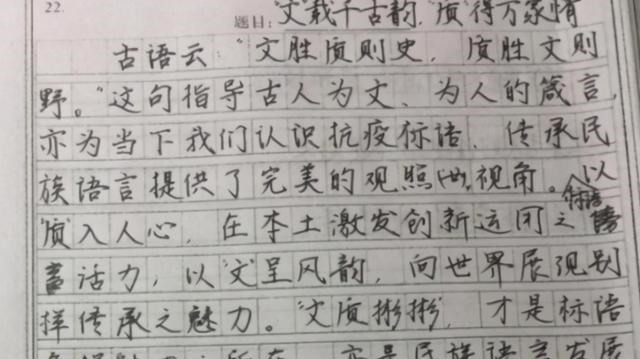 22.
题目：“文”载千古韵，“质”得万家情
古语云：“文胜质则史，质胜文则
野。”这句指导古人为文、为人的箴言，
亦为当下我们认识抗疫标语、传承民
族语言提供了完美的观照视角。以
“质”入人心，在本土激发创新运用之标语
活力，以“文”呈风韵，向世界展现别
样传承之魅力。“文质彬彬”，才是标语
亦是民族语言发展